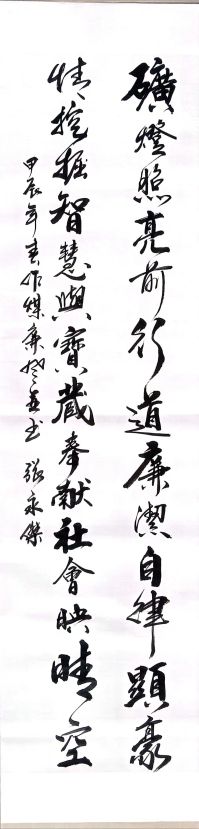 礦燈照亮前行道廉潔自律顯豪
情挖掘智慧與寶藏奉獻社會映晴空
甲辰年春作煤廉梦並书 張永傑